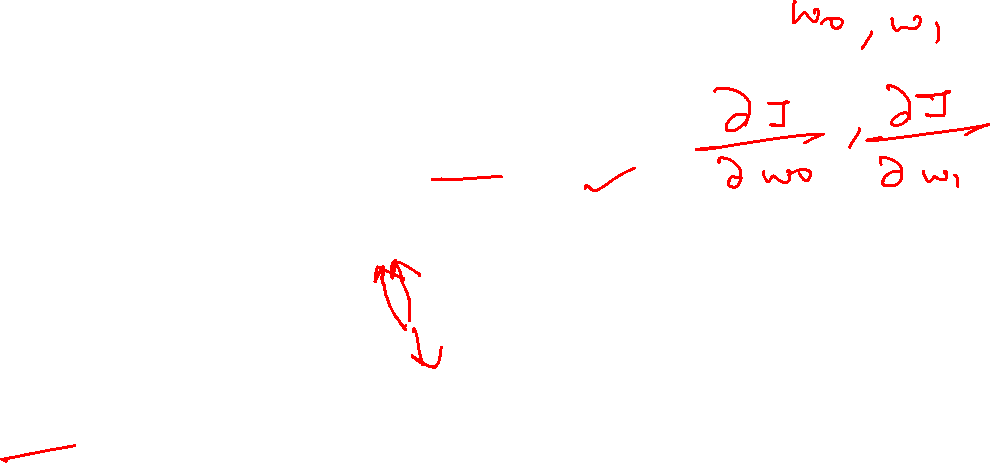 w₀, w₁
∂J/∂w₀, ∂J/∂w₁